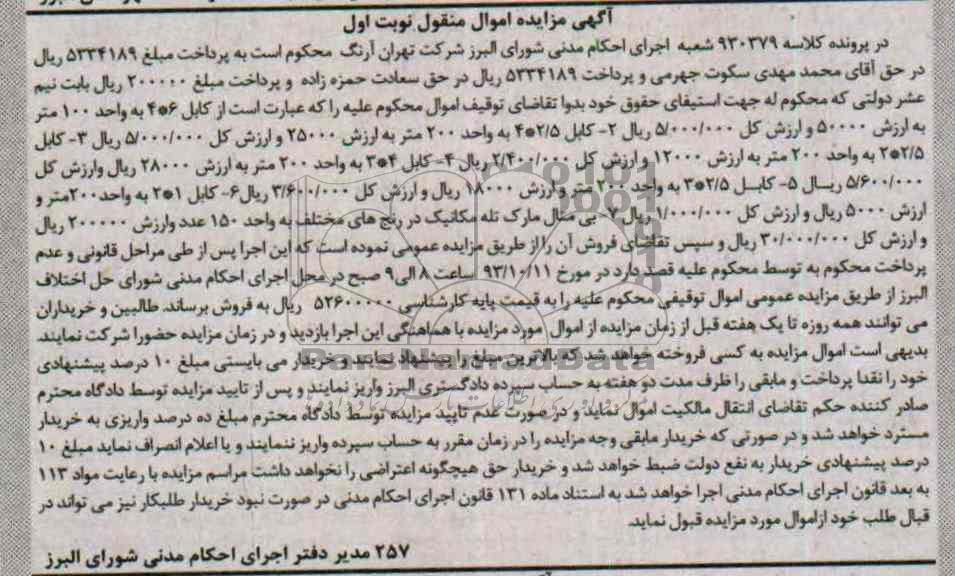 آگهی مزایده اموال منقول نوبت اول
در پرونده کلاسه ۹۳۰۳۷۹ شعبه اجرای احکام مدنی شورای البرز شرکت تهران آرنگ محکوم است به پرداخت مبلغ ۵۳۳۴۱۸۹ ریال
در حق آقای محمد مهدی سکوت جهرمی و پرداخت ۵۳۳۴۱۸۹ ریال در حق سعادت حمزه زاده و پرداخت مبلغ ۲۰۰۰۰۰ ریال بابت نیم
عشر دولتی که محکوم له جهت استیفای حقوق خود بدوا تقاضای توقیف اموال محکوم علیه را که عبارت است از کابل ۶*۴ به واحد ۱۰۰ متر
به ارزش ۵۰۰۰۰ و ارزش کل ۵/۰۰۰/۰۰۰ ریال ۲- کابل ۲/۵*۴ به واحد ۲۰۰ متر به ارزش ۲۵۰۰۰ و ارزش کل ۵/۰۰۰/۰۰۰ ریال ۳- کابل
۲/۵*۲ به واحد ۲۰۰ متر به ارزش ۱۲۰۰۰ و ارزش کل ۲/۴۰۰/۰۰۰ ریال ۴- کابل ۴*۳ به واحد ۲۰۰ متر به ارزش ۲۸۰۰۰ ریال وارزش کل
۵/۶۰۰/۰۰۰ ریال ۵- کابل ۲/۵*۳ به واحد ۲۰۰ متر و ارزش ۱۸۰۰۰ ریال و ارزش کل ۳/۶۰۰/۰۰۰ ریال ۶- کابل ۱*۲ به واحد ۲۰۰متر و
ارزش ۵۰۰۰ ریال و ارزش کل ۱/۰۰۰/۰۰۰ ریال ۷- بی متال مارک تله مکانیک در رنج های مختلف به واحد ۱۵۰ عدد وارزش ۲۰۰۰۰۰ ریال
و ارزش کل ۳۰/۰۰۰/۰۰۰ ریال و سپس تقاضای فروش آن را از طریق مزایده عمومی نموده است که این اجرا پس از طی مراحل قانونی و عدم
پرداخت محکوم به توسط محکوم علیه قصد دارد در مورخ ۹۳/۱۰/۱۱ ساعت ۸ الی ۹ صبح در محل اجرای احکام مدنی شورای حل اختلاف
البرز از طریق مزایده عمومی اموال توقیفی محکوم علیه را به قیمت پایه کارشناسی ۵۲۶۰۰۰۰۰ ریال به فروش برساند. طالبین و خریداران
می توانند همه روزه تا یک هفته قبل از زمان مزایده از اموال مورد مزایده با هماهنگی این اجرا بازدید و در زمان مزایده حضورا شرکت نمایند.
بدیهی است اموال مزایده به کسی فروخته خواهد شد که بالاترین مبلغ را پیشنهاد نمایند و خریدار می بایستی مبلغ ۱۰ درصد پیشنهادی
خود را نقدا پرداخت و مابقی را ظرف مدت دو هفته به حساب سپرده دادگستری البرز واریز نمایند و پس از تایید مزایده توسط دادگاه محترم
صادر کننده حکم تقاضای انتقال مالکیت اموال نماید و در صورت عدم تایید مزایده توسط دادگاه محترم مبلغ ده درصد واریزی به خریدار
مسترد خواهد شد و در صورتی که خریدار مابقی وجه مزایده را در زمان مقرر به حساب سپرده واریز ننمایند و یا اعلام انصراف نماید مبلغ ۱۰
درصد پیشنهادی خریدار به نفع دولت ضبط خواهد شد و خریدار حق هیچگونه اعتراضی را نخواهد داشت مراسم مزایده با رعایت مواد ۱۱۳
به بعد قانون اجرای احکام مدنی اجرا خواهد شد به استناد ماده ۱۳۱ قانون اجرای احکام مدنی در صورت نبود خریدار طلبکار نیز می تواند در
قبال طلب خود ازاموال مورد مزایده قبول نماید.
۲۵۷ مدیر دفتر اجرای احکام مدنی شورای البرز
ParsNamadData